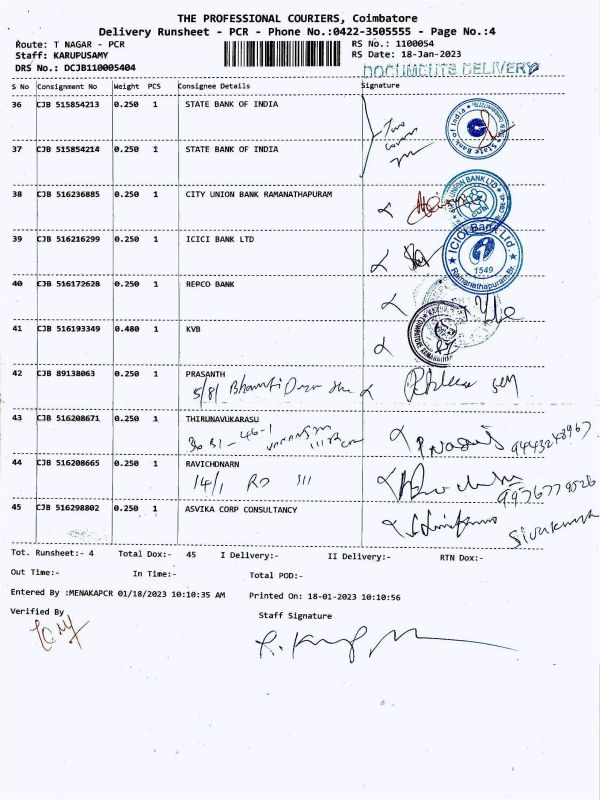 THE PROFESSIONAL COURIERS, Coimbatore
Delivery Runsheet - PCR - Phone No.:0422-3505555 - Page No.:4
Route: T NAGAR - PCR
RS No.: 1100054
Staff: KARUPUSAMY
RS Date: 18-Jan-2023
DRS No.: DCJB110005404
DOCUMENTS DELIVERY
S No Consignment No Weight PCS Consignee Details Signature
36 CJB 515854213 0.250 1 STATE BANK OF INDIA
Two
State Bank of India
37 CJB 515854214 0.250 1 STATE BANK OF INDIA
38 CJB 516236885 0.250 1 CITY UNION BANK RAMANATHAPURAM
UNION BANK LTD
CUB
39 CJB 516216299 0.250 1 ICICI BANK LTD
ICICI Bank Ltd.
1549
Ramanathapuram Br.
40 CJB 516172628 0.250 1 REPCO BANK
41 CJB 516193349 0.480 1 KVB
42 CJB 89138063 0.250 1 PRASANTH
5/81
43 CJB 516208671 0.250 1 THIRUNAVUKARASU
9443248967
44 CJB 516208665 0.250 1 RAVICHDNARN
14/1
45 CJB 516298802 0.250 1 ASVIKA CORP CONSULTANCY
Tot. Runsheet:- 4 Total Dox:- 45 I Delivery:- II Delivery:- RTN Dox:-
Out Time:- In Time:- Total POD:-
Entered By :MENAKAPCR 01/18/2023 10:10:35 AM Printed On: 18-01-2023 10:10:56
Verified By
Staff Signature